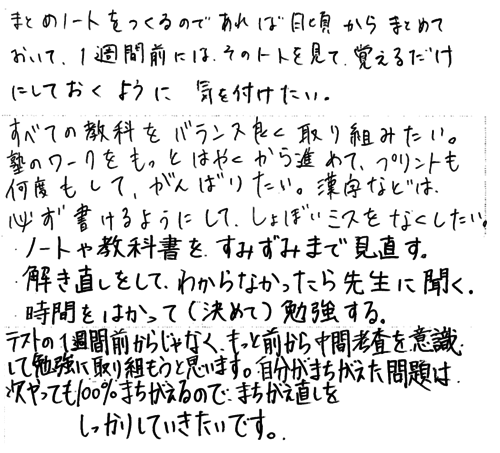 まとめノートをつくるのであれば日頃からまとめて
おいて、1週間前には、そのノートを見て、覚えるだけ
にしておくように 気を付けたい。
すべての教科をバランス良く取り組みたい。
塾のワークをもっとはやくから進めて、プリントも
何度もして、がんばりたい。漢字などは、
必ず書けるようにして、しょぼいミスをなくしたい。
・ノートや教科書を、すみずみまで見直す。
・解き直しをして、わからなかったら先生に聞く.
・時間をはかって(決めて)勉強する。
テストの1週間前からじゃなく、もっと前から中間考査を意識
して勉強に取り組もうと思います。自分がまちがえた問題は
次やっても100%まちがえるので、まちがえ直しを
しっかりしていきたいです。